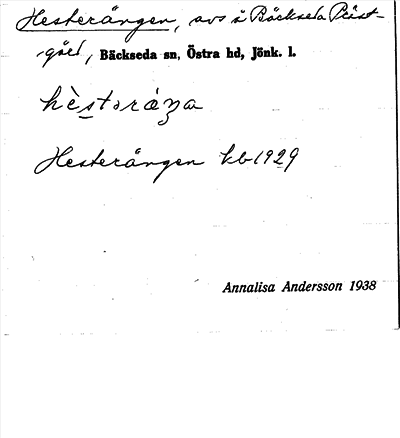 Hesterången, avs å Bäckseda Präst-
gård, Bäckseda sn, Östra hd, Jönk. l.
hèstəráŋa
Hesterången hb 1929
Annalisa Andersson 1938